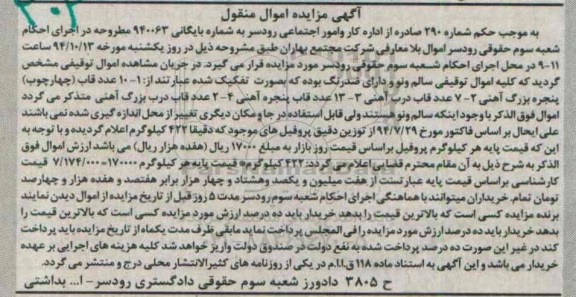 آگهی مزایده اموال منقول
به موجب حکم شماره ۲۹۰ صادره از اداره کار وامور اجتماعی رودسر به شماره بایگانی ۹۴۰۰۶۳ مطروحه در اجرای احکام
شعبه سوم حقوقی رودسر اموال بلا معارفی شرکت مجتمع بهاران طبق مشروحه ذیل در روز یکشنبه مورخه ۹۴/۱۰/۱۳ ساعت
۹-۱۱ در محل اجرای احکام شعبه سوم حقوقی رودسر مورد مزایده قرار می گیرد. در جریان مشاهده اموال توقیفی مشخص
گردید که کلیه اموال توقیفی سالم ونو و دارای ضدزنگ بوده که بصورت تفکیک شده عبارتند از: ۱- ۱۰ عدد قاب (چهارچوب)
پنجره بزرگ آهنی ۲- ۷ عدد قاب درب آهنی ۳- ۱۳ عدد قاب پنجره آهنی ۴- ۲ عدد قاب درب بزرگ آهنی متذکر می گردد
اموال فوق الذکر با وجود اینکه سالم ونو هستند ولی قابل استفاده در جا ومکان دیگری تغییر از محل اندازه گیری شده نمی باشند
علی ایحال بر اساس فاکتور مورخ ۹۴/۷/۲۹ از توزین دقیق پروفیل های موجود که دقیقا ۴۲۲ کیلوگرم اعلام گردیده و با توجه به
این که قیمت پایه هر کیلوگرم پروفیل براساس قیمت روز بازار به مبلغ ۱۷۰۰۰ ریال (هفده هزار ریال) می باشد ارزش اموال فوق
الذکر به شرح ذیل به آن مقام محترم قضایی اعلام می گردد: ۴۲۲ کیلوگرم* قیمت پایه هر کیلوگرم ۱۷۰۰۰۰= ۷/۱۷۴/۰۰۰ قیمت
کارشناسی براساس قیمت پایه عبارتست از هفت میلیون و یکصد وهشتاد و چهار هزار برابر هفتصد و هفده هزار و چهارصد
تومان تمام. خریداران میتوانند با هماهنگی اجرای احکام شعبه سوم رودسر مدت ۵ روز قبل از تاریخ مزایده از اموال دیدن نمایند
برنده مزایده کسی است که بالاترین قیمت را بدهد خریدار باید ده درصد ارزش مورد مزایده کسی است که بالاترین قیمت را
بدهد خریدار باید ده درصد ارزش مورد مزایده را فی المجلس پرداخت نماید مابقی ظرف مدت یکماه از تاریخ مزایده باید پرداخت
کند در غیر این صورت ده درصد پرداخت شده به نفع دولت در صندوق دولت واریز خواهد شد کلیه هزینه های اجرایی بر عهده
خریدار می باشد و این آگهی به استناد ماده ۱۱۸ ق.ا.ا.م در یکی از روزنامه های کثیرالانتشار محلی درج و منتشر می گردد.
ح ۳۸۰۵ دادورز شعبه سوم حقوقی دادگستری رودسر- ا... بداشتی